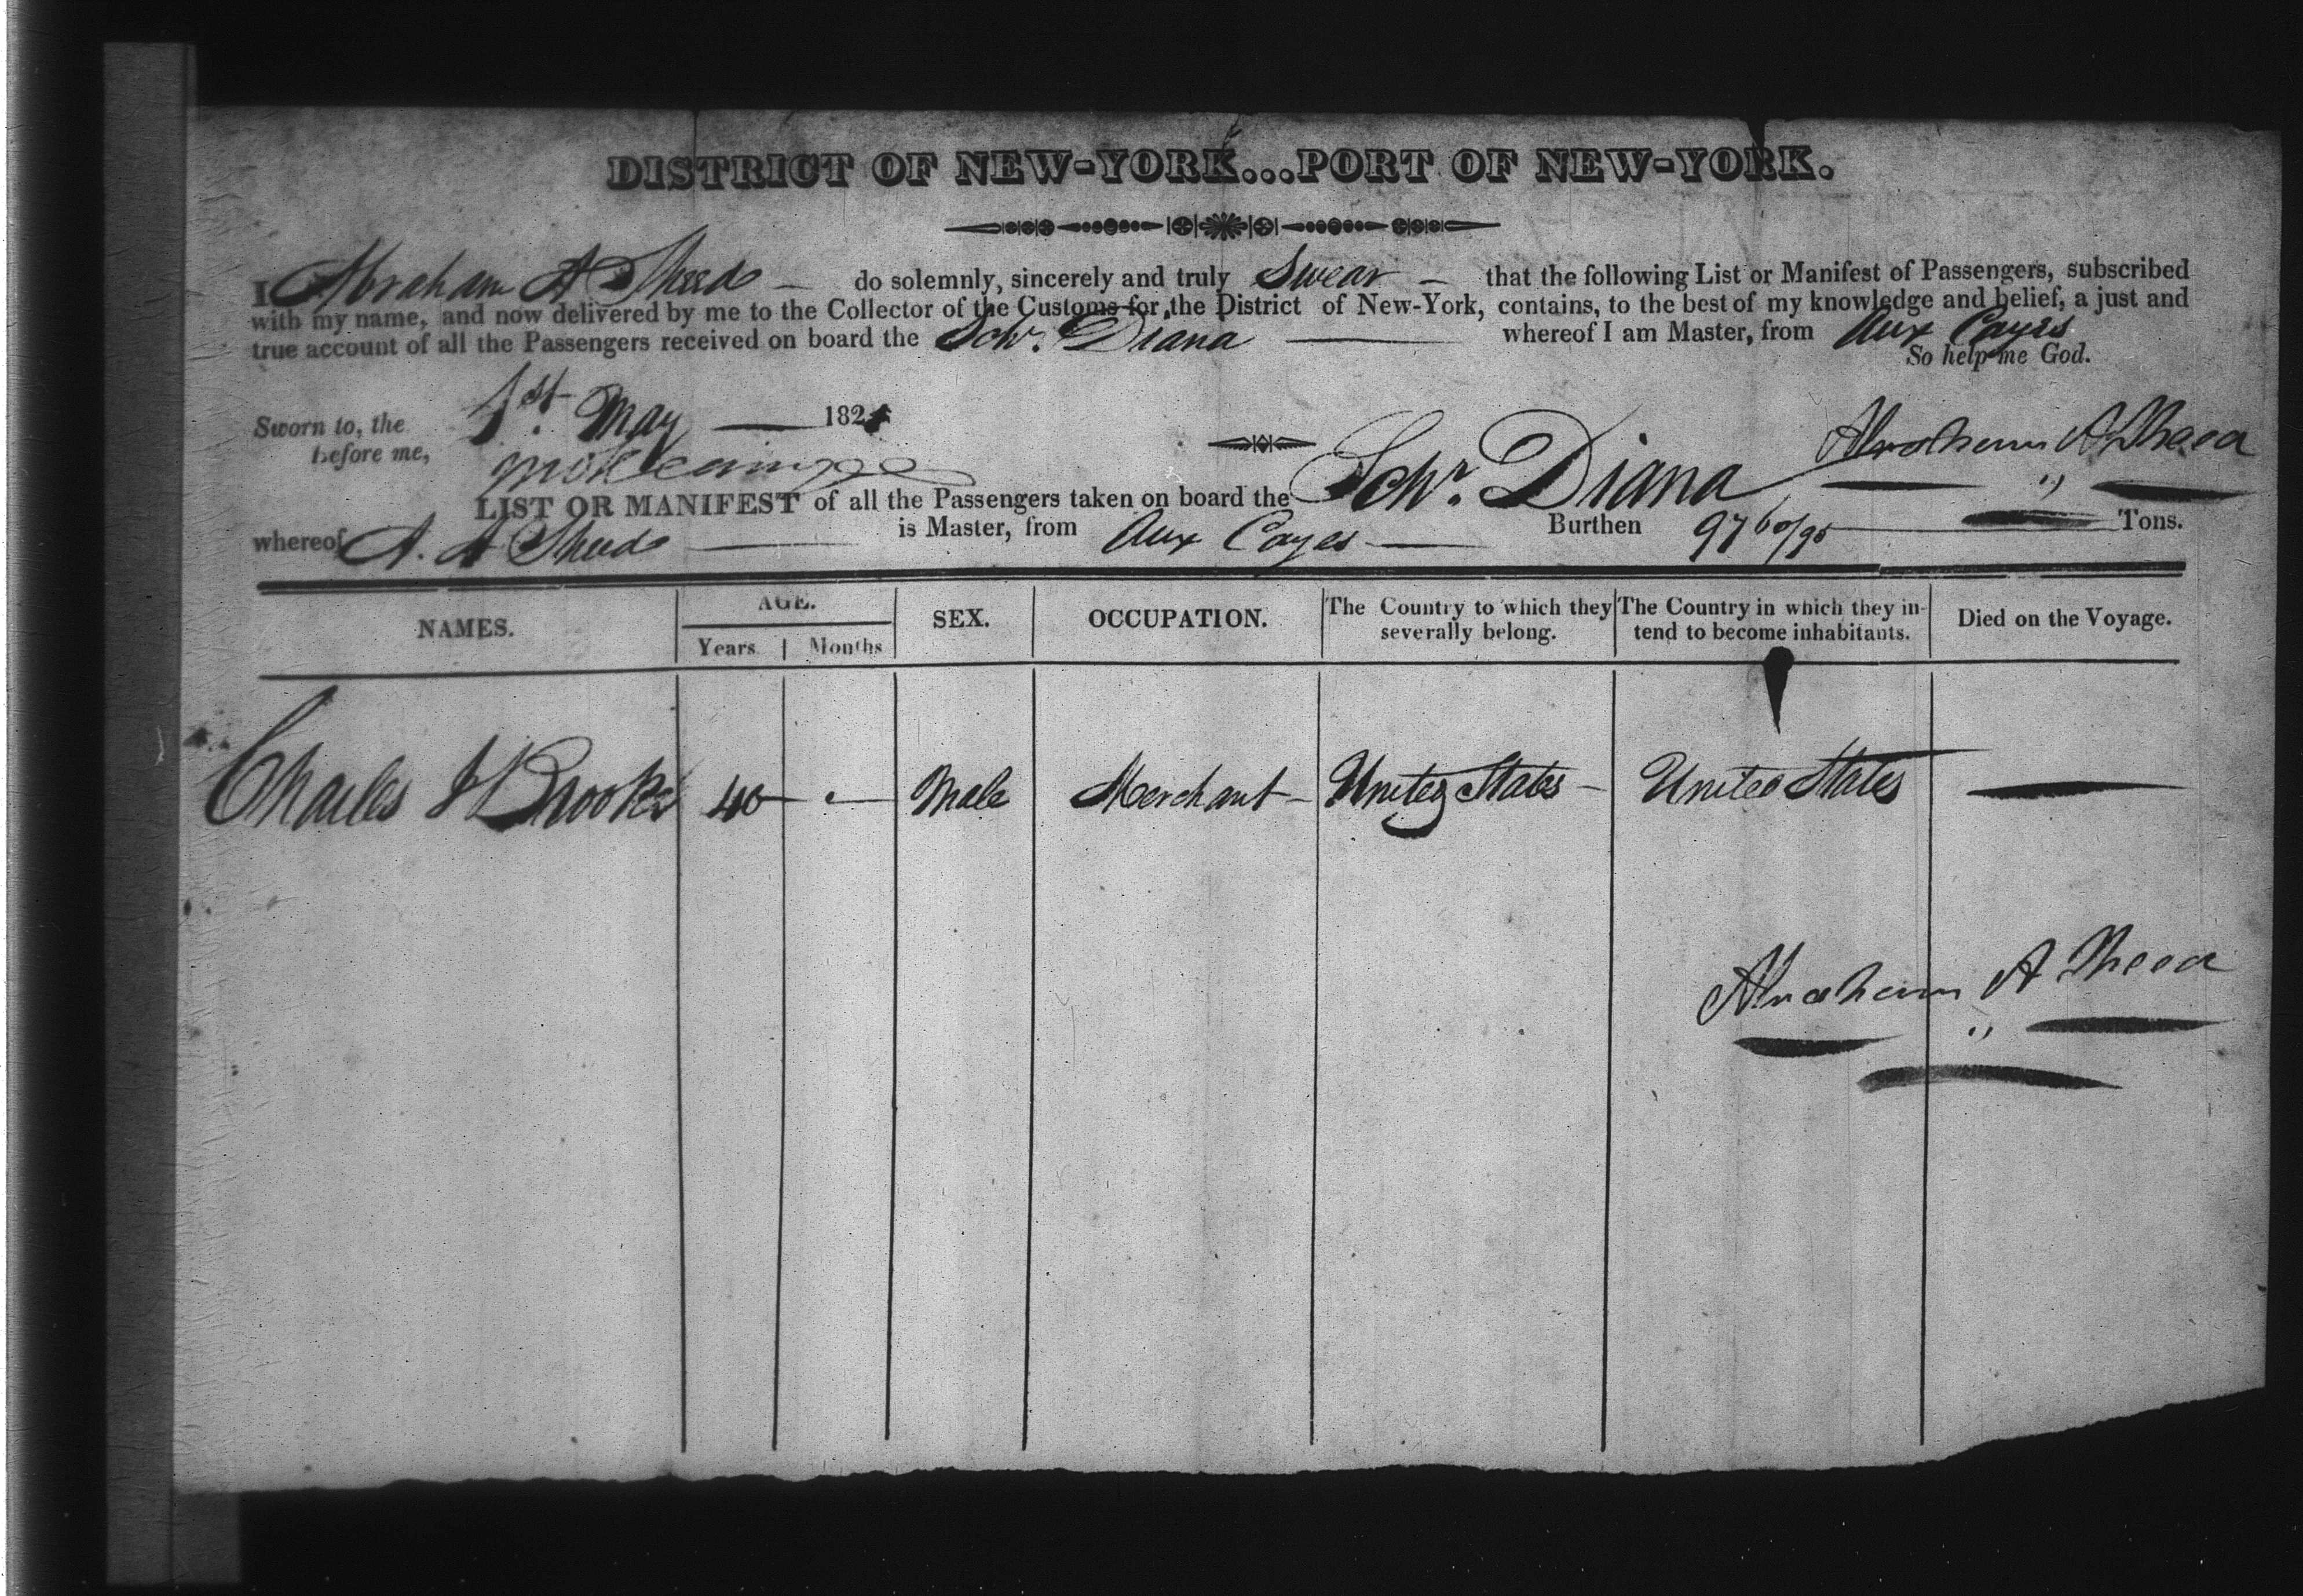 DISTRICT OF NEW-YORK...PORT OF NEW-YORK.
I Abraham A Sheed — do solemnly, sincerely and truly Swear — that the following List or Manifest of Passengers, subscribed
with my name, and now delivered by me to the Collector of the Customs for the District of New-York, contains, to the best of my knowledge and belief, a just and
true account of all the Passengers received on board the Schr. Diana — whereof I am Master, from Aux Cayes
So help me God.
Sworn to, the 1st. May — 182
before me,
Abraham A Sheed
LIST OR MANIFEST of all the Passengers taken on board the Schr. Diana
whereof A. A Sheed — is Master, from Aux Cayes — Burthen 97 60/95 — Tons.
NAMES. AGE. SEX. OCCUPATION. The Country to which they severally belong. The Country in which they intend to become inhabitants. Died on the Voyage.
Years Months
Charles Brooks 40 — Male Merchant — United States — United States —
Abraham A Sheed